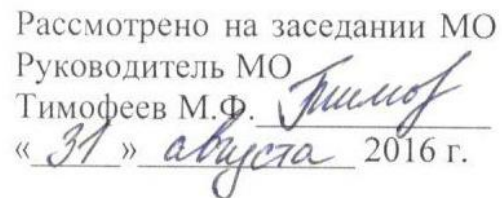 Рассмотрено на заседании МО
Руководитель МО
Тимофеев М.Ф. Тимоф
« 31 » августа 2016 г.